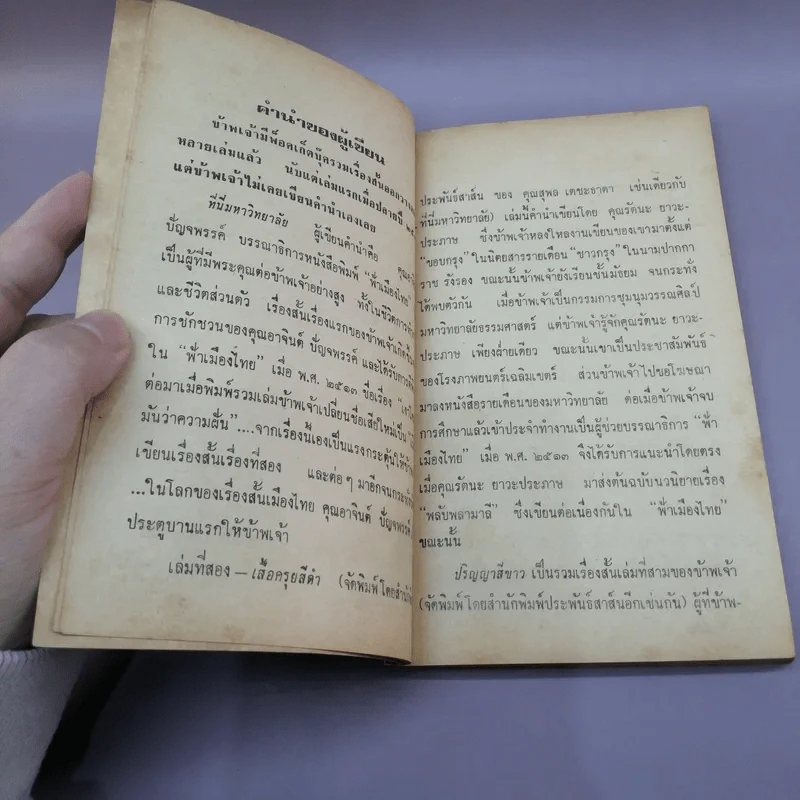 คำนำของผู้เขียน
ข้าพเจ้ามีพ็อคเก็ตบุ๊ครวมเรื่องสั้นออกวาง
หลายเล่มแล้ว นับแต่เล่มแรกเมื่อปลายปี
แต่ข้าพเจ้าไม่เคยเขียนคำนำเองเลย
ที่นี่มหาวิทยาลัย ผู้เขียนคำนำคือ
ปัญจพรรค์ บรรณาธิการหนังสือพิมพ์ "ฟ้าเมืองไทย"
เป็นผู้ที่มีพระคุณต่อข้าพเจ้าอย่างสูง ทั้งในชีวิตการ
และชีวิตส่วนตัว เรื่องสั้นเรื่องแรกของข้าพเจ้าเกิด
การชักชวนของคุณอาจินต์ ปัญจพรรค์ และได้รับการ
ใน "ฟ้าเมืองไทย" เมื่อ พ.ศ. ๒๕๑๓ ชื่อเรื่อง
ต่อมาเมื่อพิมพ์รวมเล่มข้าพเจ้าเปลี่ยนชื่อเสียใหม่เป็น
มันว่าความฝัน"....จากเรื่องนี้เองเป็นแรงกระตุ้นให้
เขียนเรื่องสั้นเรื่องที่สอง และต่อๆ มาอีกจนกระทั่ง
...ในโลกของเรื่องสั้นเมืองไทย คุณอาจินต์ ปัญจพรรค์
ประตูบานแรกให้ข้าพเจ้า
เล่มที่สอง – เสื้อครุยสีดำ (จัดพิมพ์โดยสำนัก
ประพันธ์สาส์น ของ คุณสุพล เตชะธาดา เช่นเดียวกับ
ที่นี่มหาวิทยาลัย) เล่มนี้คำนำเขียนโดย คุณรัตนะ ยาวะ-
ประภาษ ซึ่งข้าพเจ้าหลงใหลงานเขียนของเขามาตั้งแต่
"ขอบกรุง" ในนิตยสารรายเดือน "ชาวกรุง" ในนามปากกา
ราช รังรอง ขณะนั้นข้าพเจ้ายังเรียนชั้นมัธยม จนกระทั่ง
ได้พบตัวกัน เมื่อข้าพเจ้าเป็นกรรมการชุมนุมวรรณศิลป์
มหาวิทยาลัยธรรมศาสตร์ แต่ข้าพเจ้ารู้จักคุณรัตนะ ยาวะ-
ประภาษ เพียงฝ่ายเดียว ขณะนั้นเขาเป็นประชาสัมพันธ์
ของโรงภาพยนตร์เฉลิมเขตร์ ส่วนข้าพเจ้าไปขอโฆษณา
มาลงหนังสือรายเดือนของมหาวิทยาลัย ต่อเมื่อข้าพเจ้าจบ
การศึกษาแล้วเข้าประจำทำงานเป็นผู้ช่วยบรรณาธิการ "ฟ้า
เมืองไทย" เมื่อ พ.ศ. ๒๕๑๓ จึงได้รับการแนะนำโดยตรง
เมื่อคุณรัตนะ ยาวะประภาษ มาส่งต้นฉบับนวนิยายเรื่อง
"พลับพลามาลี" ซึ่งเขียนต่อเนื่องกันใน "ฟ้าเมืองไทย"
ขณะนั้น
ปริญญาสีขาว เป็นรวมเรื่องสั้นเล่มที่สามของข้าพเจ้า
(จัดพิมพ์โดยสำนักพิมพ์ประพันธ์สาส์นอีกเช่นกัน) ผู้ที่ข้าพ-